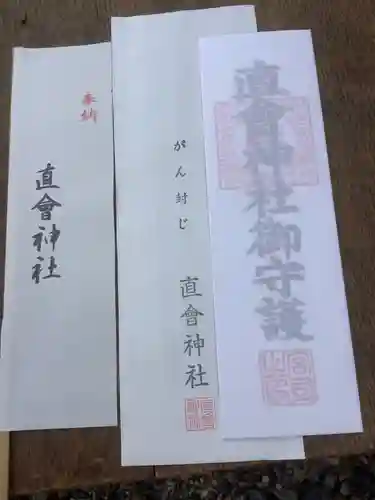 直會神社御守護
がん封じ
直會神社
奉納
直會神社